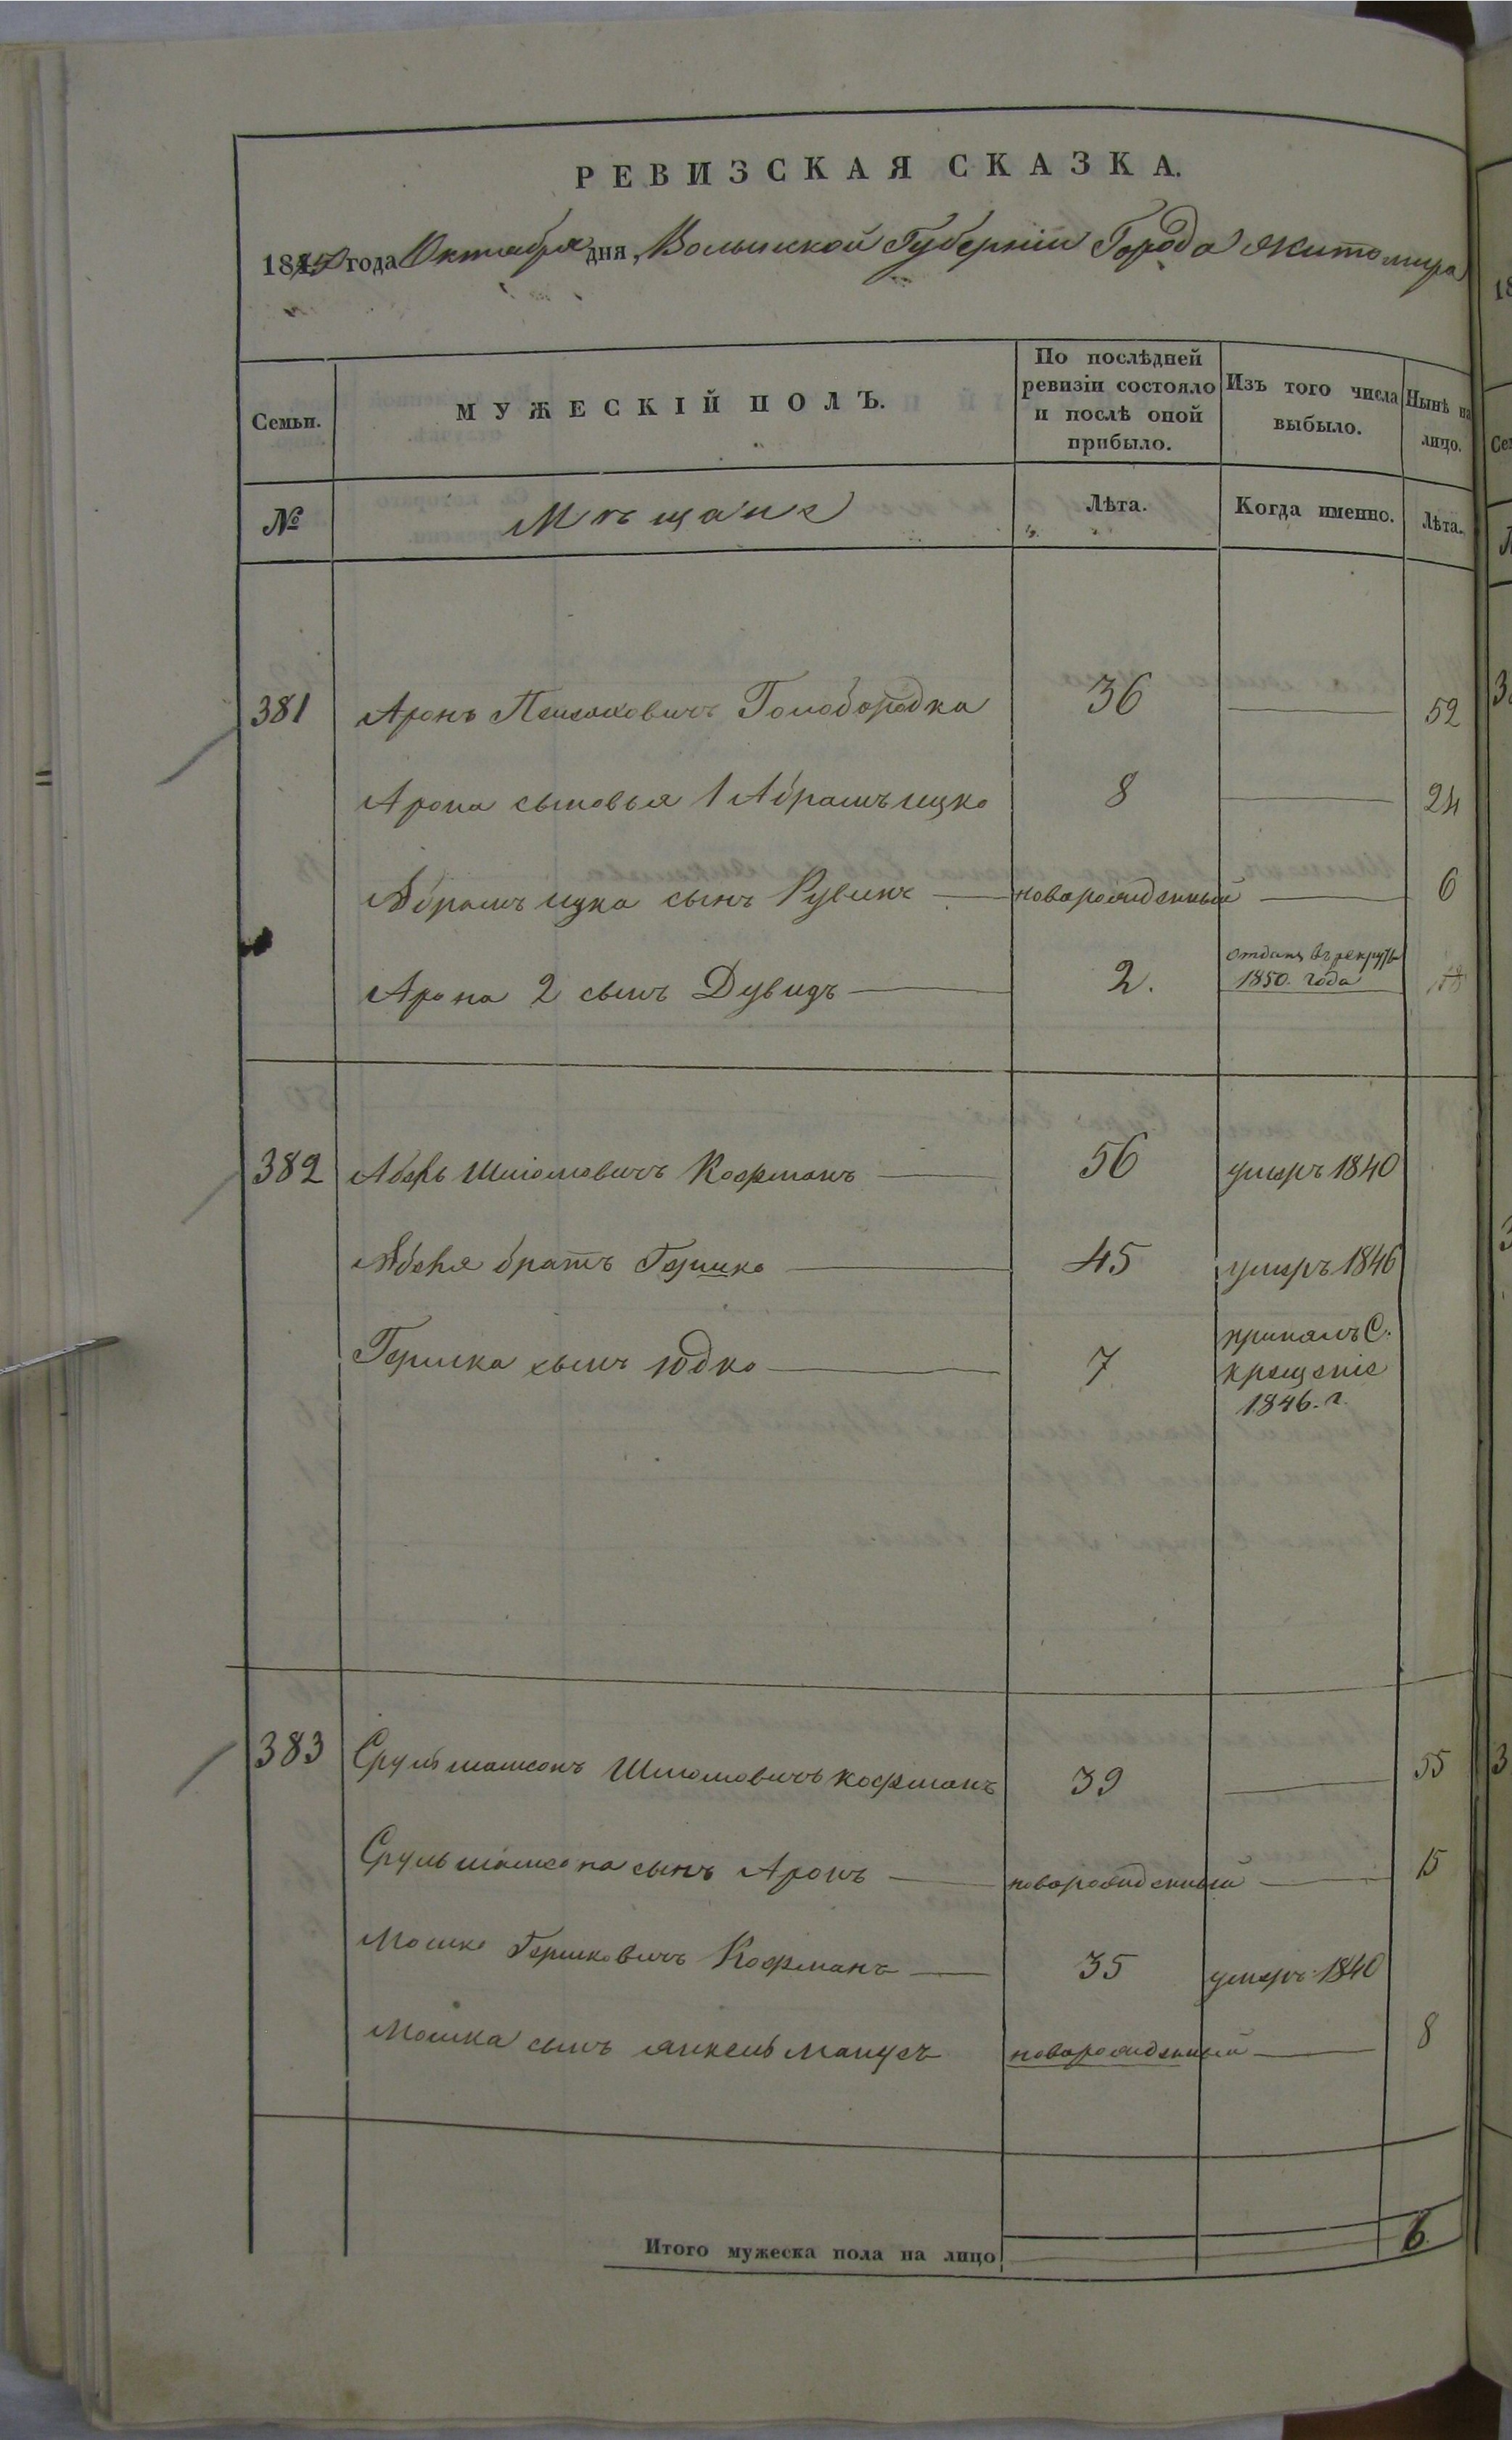 РЕВИЗСКАЯ СКАЗКА.
1850 года Октября дня, Волынской Губерніи Города Житомира
Семьи.
МУЖЕСКІЙ ПОЛЪ.
По послѣдней ревизіи состояло и послѣ оной прибыло.
Изъ того числа выбыло.
Нынѣ на лицо.
№
Мѣщане
Лѣта.
Когда именно.
Лѣта.
381 Аронъ Пейсаховичъ Голобородка 36 52
Арона сыновья 1 Абрамъ ицко 8 24
Абрамъ ицка сынъ Рувинъ новорожденный 6
Арона 2 сынъ Дувидъ 2. отданъ въ рекруты 1850. года 18
382 Шліомовичъ Кофманъ 56 умеръ 1840
братъ Гершко 45 умеръ 1846
Гершка сынъ Юдко 7 принялъ С. крещеніе 1846. г.
383 Сруль шамсонъ Шліомовичъ кофманъ 39 55
Сруль шамсона сынъ Аронъ новорожденный 15
Мошко Гершковичъ Кофманъ 35 умеръ 1840
Мошка сынъ янкель манусъ новорожденный 8
Итого мужеска пола на лицо 6.